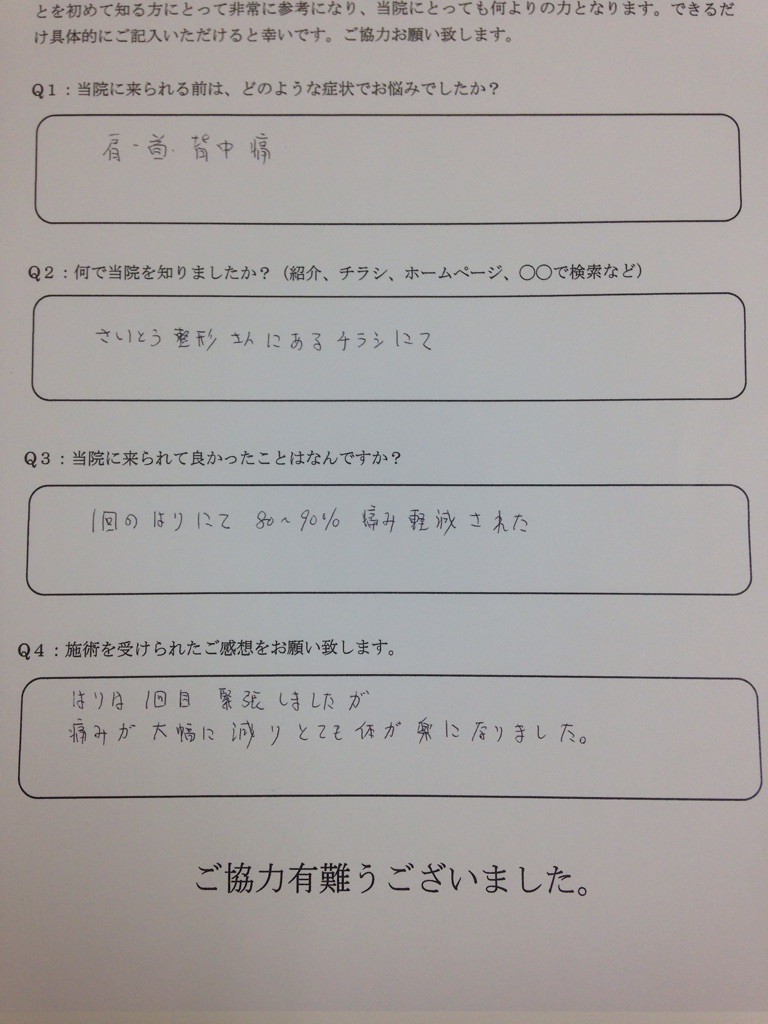 とを初めて知る方にとって非常に参考になり、当院にとっても何よりの力となります。できるだ
け具体的にご記入いただけると幸いです。ご協力お願い致します。
Q1：当院に来られる前は、どのような症状でお悩みでしたか？
肩・首・背中痛
Q2：何で当院を知りましたか？（紹介、チラシ、ホームページ、〇〇で検索など）
さいとう整形さんにあるチラシにて
Q3：当院に来られて良かったことはなんですか？
1回のはりにて 80～90% 痛み軽減された
Q4：施術を受けられたご感想をお願い致します。
はりは1回目 緊張しましたが
痛みが大幅に減りとても体が楽になりました。
ご協力有難うございました。